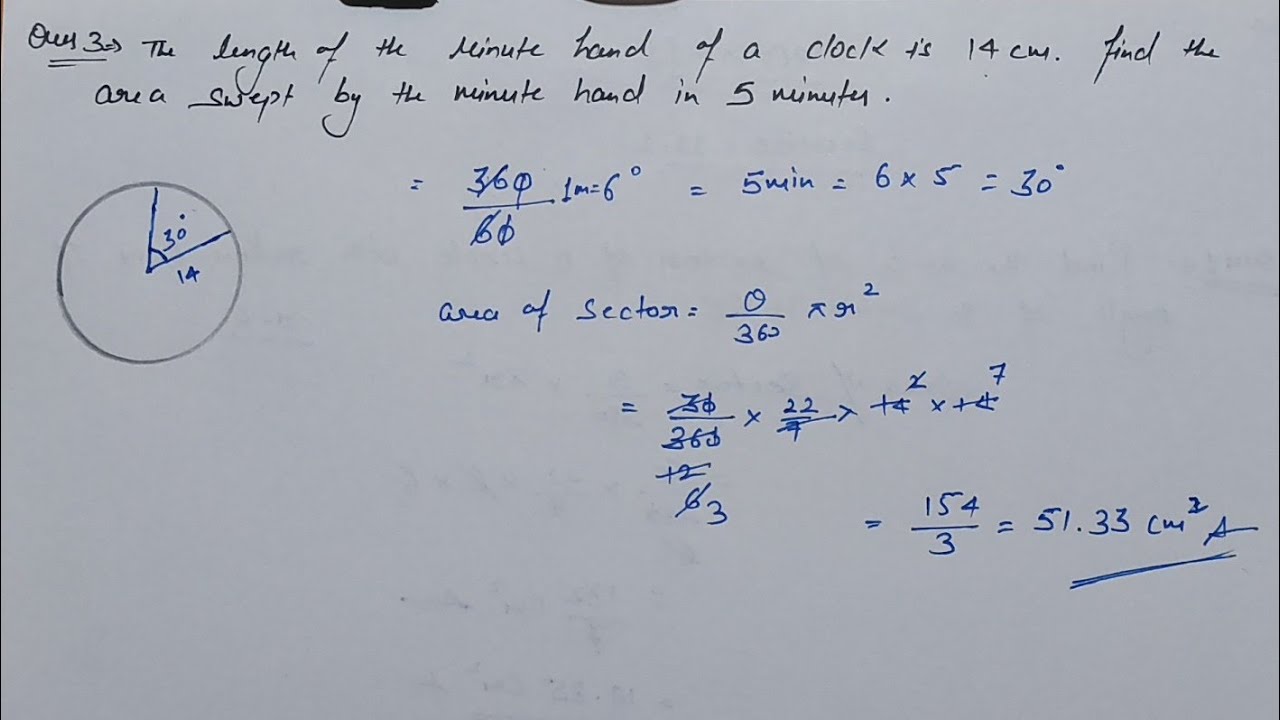 Ques 3⇒ The length of the minute hand of a clock is 14 cm. find the
area swept by the minute hand in 5 minutes.
= 360/60 1m=6° = 5min = 6 × 5 = 30°
30°
14
area of Sector = θ/360 πr²
= 30/360 × 22/7 × 14 2 × 14 7
12
6 3
= 154/3 = 51.33 cm² A